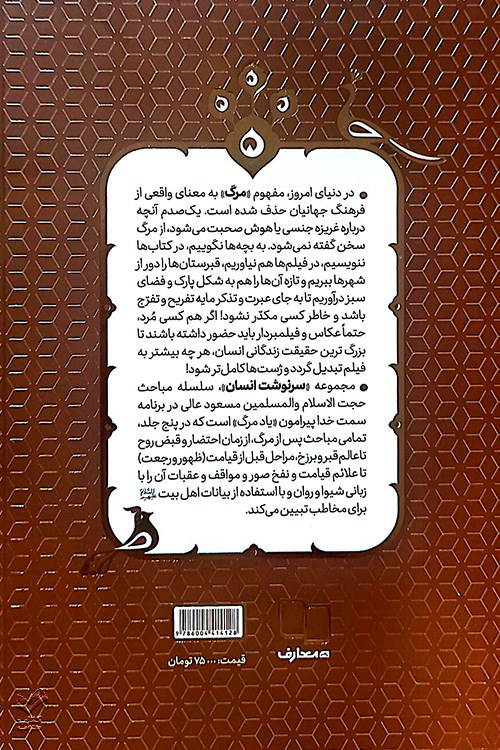 در دنیای امروز، مفهوم «مرگ» به معنای واقعی از
فرهنگ جهانیان حذف شده است. یک‌صدم آنچه
درباره غریزه جنسی یا هوش صحبت می‌شود، از مرگ
سخن گفته نمی‌شود. به بچه‌ها نگوییم، در کتاب‌ها
ننویسیم، در فیلم‌ها هم نیاوریم، قبرستان‌ها را دور از
شهرها ببریم و تازه آن‌ها را هم به شکل پارک و فضای
سبز درآوریم تا به جای عبرت و تذکر مایه تفریح و تفرّج
باشد و خاطر کسی مکدّر نشود! اگر هم کسی مُرد،
حتماً عکاس و فیلمبردار باید حضور داشته باشند تا
بزرگ ترین حقیقت زندگانی انسان، هر چه بیشتر به
فیلم تبدیل گردد و ژست‌ها کامل‌تر شود!
مجموعه «سرنوشت انسان»، سلسله مباحث
حجت الاسلام والمسلمین مسعود عالی در برنامه
سمت خدا پیرامون «یاد مرگ» است که در پنج جلد،
تمامی مباحث پس از مرگ، از زمان احتضار و قبض روح
تا عالم قبر و برزخ، مراحل قبل از قیامت (ظهور و رجعت)
تا علائم قیامت و نفخ صور و مواقف و عقبات آن را با
زبانی شیوا و روان و با استفاده از بیانات اهل بیت
برای مخاطب تبیین می‌کند.
9786004414128
معارف
قیمت: ۷۵۰۰۰ تومان